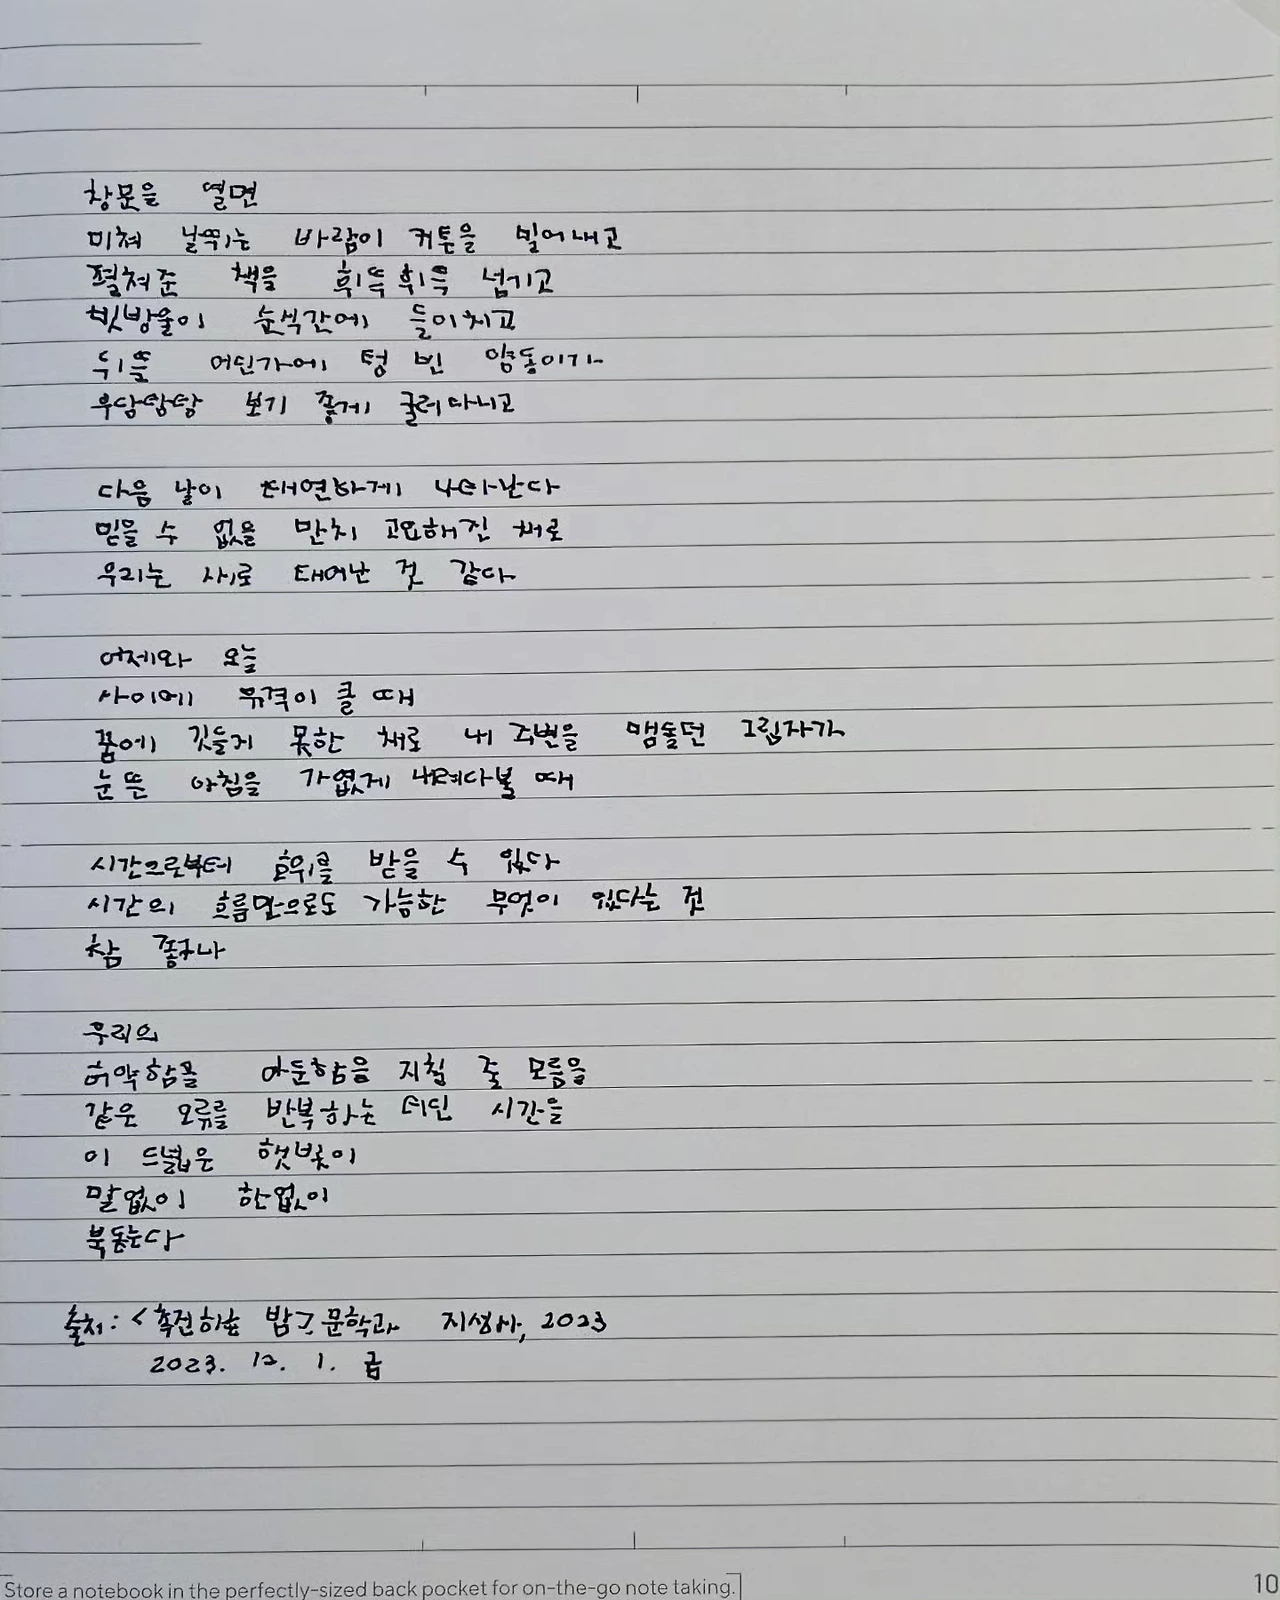 창문을 열면
미쳐 날뛰는 바람이 커튼을 밀어내고
펼쳐준 책을 휘뜩휘뜩 넘기고
빗방울이 순식간에 들이치고
뒤뜰 어딘가에 텅 빈 양동이가
우당탕탕 보기 좋게 굴러다니고
다음 날이 태연하게 나타난다
믿을 수 없을 만치 고요해진 채로
우리는 새로 태어난 것 같다
어제와 오늘
사이에 유격이 클 때
꿈에 깃들지 못한 채로 내 주변을 맴돌던 그림자가
눈 뜬 아침을 가엾게 내려다볼 때
시간으로부터 호위를 받을 수 있다
시간의 흐름만으로도 가능한 무엇이 있다는 것
참 좋구나
우리의
허약함을 아둔함을 지칠 줄 모름을
같은 오류를 반복하는 더딘 시간을
이 드넓은 햇빛이
말없이 한없이
북돋는다
출처: <촉진하는 밤> 문학과 지성사, 2023
2023. 12. 1. 금
Store a notebook in the perfectly-sized back pocket for on-the-go note taking.
10